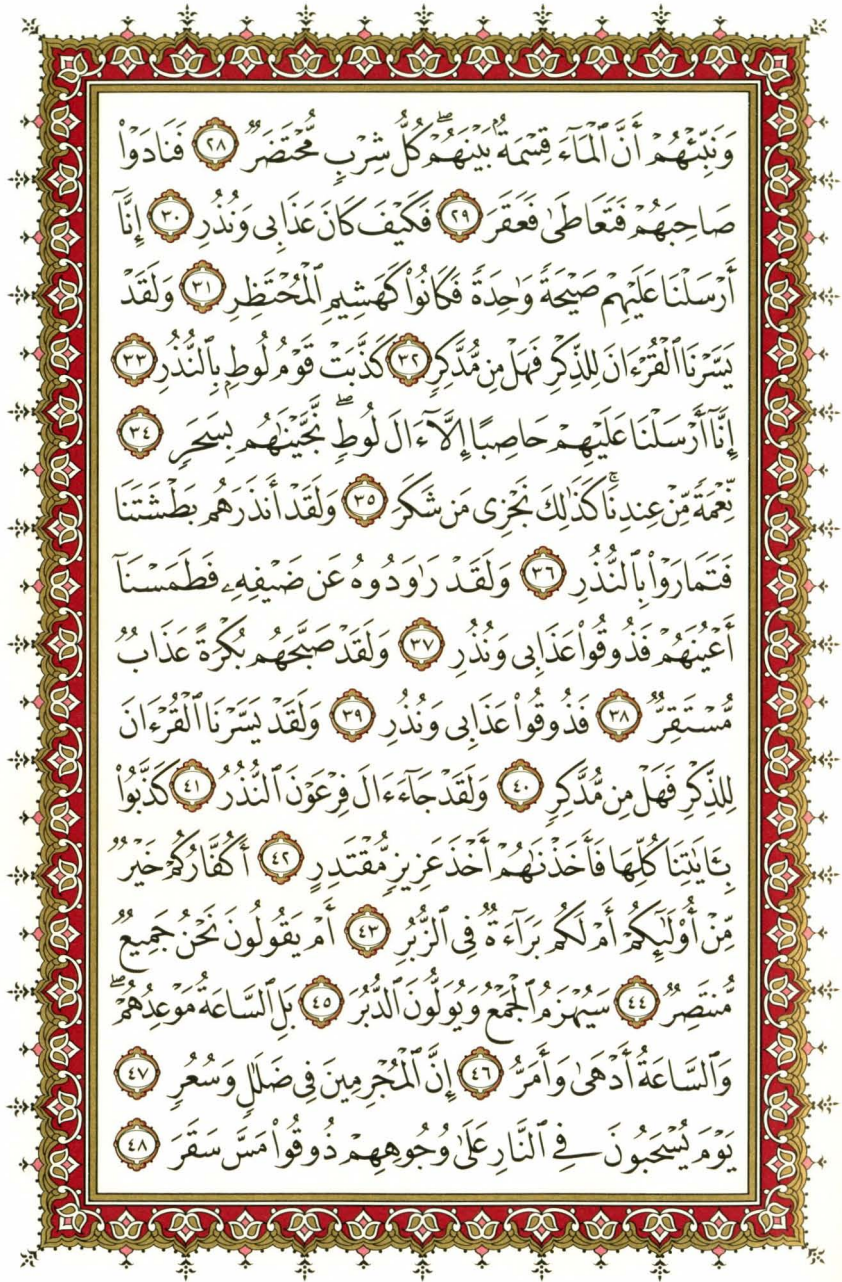 وَنَبِّئْهُمْ أَنَّ ٱلْمَآءَ قِسْمَةٌۢ بَيْنَهُمْۖ كُلُّ شِرْبٍ مُّحْتَضَرٌ ٢٨ فَنَادَوْا۟
صَاحِبَهُمْ فَتَعَاطَىٰ فَعَقَرَ ٢٩ فَكَيْفَ كَانَ عَذَابِى وَنُذُرِ ٣٠ إِنَّآ
أَرْسَلْنَا عَلَيْهِمْ صَيْحَةً وَٰحِدَةً فَكَانُوا۟ كَهَشِيمِ ٱلْمُحْتَظِرِ ٣١ وَلَقَدْ
يَسَّرْنَا ٱلْقُرْءَانَ لِلذِّكْرِ فَهَلْ مِن مُّدَّكِرٍ ٣٢ كَذَّبَتْ قَوْمُ لُوطٍۭ بِٱلنُّذُرِ ٣٣
إِنَّآ أَرْسَلْنَا عَلَيْهِمْ حَاصِبًا إِلَّآ ءَالَ لُوطٍۖ نَّجَّيْنَٰهُم بِسَحَرٍ ٣٤
نِّعْمَةً مِّنْ عِندِنَاۚ كَذَٰلِكَ نَجْزِى مَن شَكَرَ ٣٥ وَلَقَدْ أَنذَرَهُم بَطْشَتَنَا
فَتَمَارَوْا۟ بِٱلنُّذُرِ ٣٦ وَلَقَدْ رَٰوَدُوهُ عَن ضَيْفِهِۦ فَطَمَسْنَآ
أَعْيُنَهُمْ فَذُوقُوا۟ عَذَابِى وَنُذُرِ ٣٧ وَلَقَدْ صَبَّحَهُم بُكْرَةً عَذَابٌ
مُّسْتَقِرٌّ ٣٨ فَذُوقُوا۟ عَذَابِى وَنُذُرِ ٣٩ وَلَقَدْ يَسَّرْنَا ٱلْقُرْءَانَ
لِلذِّكْرِ فَهَلْ مِن مُّدَّكِرٍ ٤٠ وَلَقَدْ جَآءَ ءَالَ فِرْعَوْنَ ٱلنُّذُرُ ٤١ كَذَّبُوا۟
بِـَٔايَٰتِنَا كُلِّهَا فَأَخَذْنَٰهُمْ أَخْذَ عَزِيزٍ مُّقْتَدِرٍ ٤٢ أَكُفَّارُكُمْ خَيْرٌ
مِّنْ أُو۟لَٰٓئِكُمْ أَمْ لَكُم بَرَآءَةٌ فِى ٱلزُّبُرِ ٤٣ أَمْ يَقُولُونَ نَحْنُ جَمِيعٌ
مُّنتَصِرٌ ٤٤ سَيُهْزَمُ ٱلْجَمْعُ وَيُوَلُّونَ ٱلدُّبُرَ ٤٥ بَلِ ٱلسَّاعَةُ مَوْعِدُهُمْۖ
وَٱلسَّاعَةُ أَدْهَىٰ وَأَمَرُّ ٤٦ إِنَّ ٱلْمُجْرِمِينَ فِى ضَلَٰلٍ وَسُعُرٍ ٤٧
يَوْمَ يُسْحَبُونَ فِى ٱلنَّارِ عَلَىٰ وُجُوهِهِمْ ذُوقُوا۟ مَسَّ سَقَرَ ٤٨